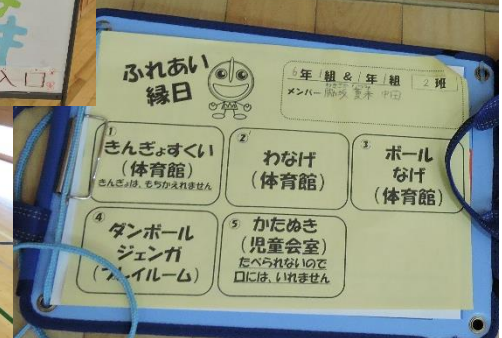 入口
ふれあい
縁日
6年1組&1年1組
2班
メンバー
①
きんぎょすくい
(体育館)
きんぎょは、もちかえれません
②
わなげ
(体育館)
③
ボール
なげ
(体育館)
④
ダンボール
ジェンガ
(プレイルーム)
⑤
かたぬき
(児童会室)
たべられないので
口には、いれません